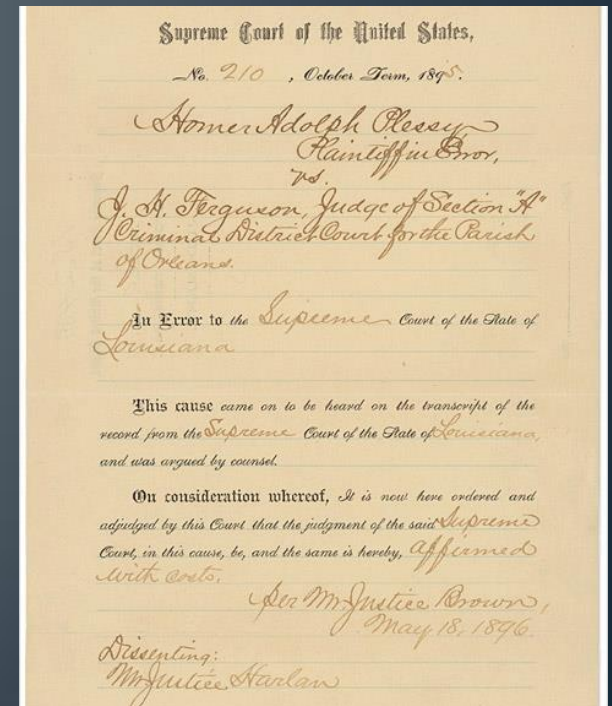 Supreme Court of the United States,
No. 210 , October Term, 1895.
Homer Adolph Plessy
Plaintiff in Error,
vs.
J. H. Ferguson, Judge of Section "A"
Criminal District Court for the Parish
of Orleans.
In Error to the Supreme Court of the State of
Louisiana
This cause came on to be heard on the transcript of the
record from the Supreme Court of the State of Louisiana,
and was argued by counsel.
On consideration whereof, It is now here ordered and
adjudged by this Court that the judgment of the said Supreme
Court, in this cause, be, and the same is hereby, affirmed
with costs.
Per Mr. Justice Brown,
May 18, 1896.
Dissenting:
Mr. Justice Harlan